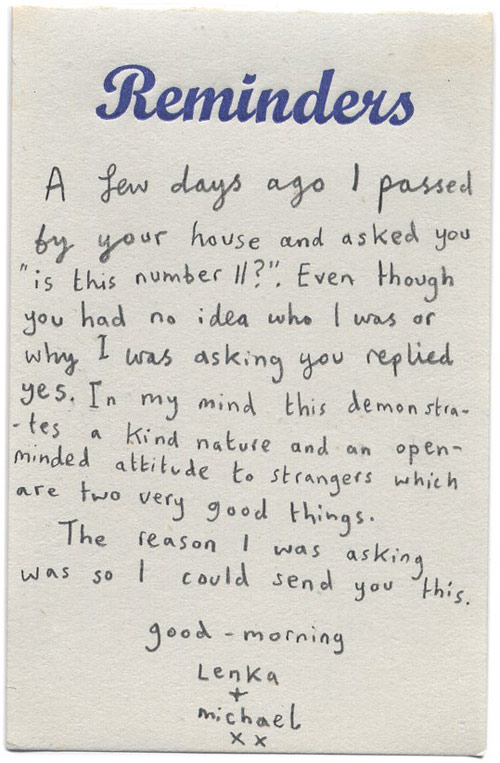 Reminders
A few days ago I passed
by your house and asked you
"is this number 11?". Even though
you had no idea who I was or
why I was asking you replied
yes. In my mind this demonstra-
-tes a kind nature and an open-
minded attitude to strangers which
are two very good things.
The reason I was asking
was so I could send you this.
good-morning
Lenka
+
michael
x x